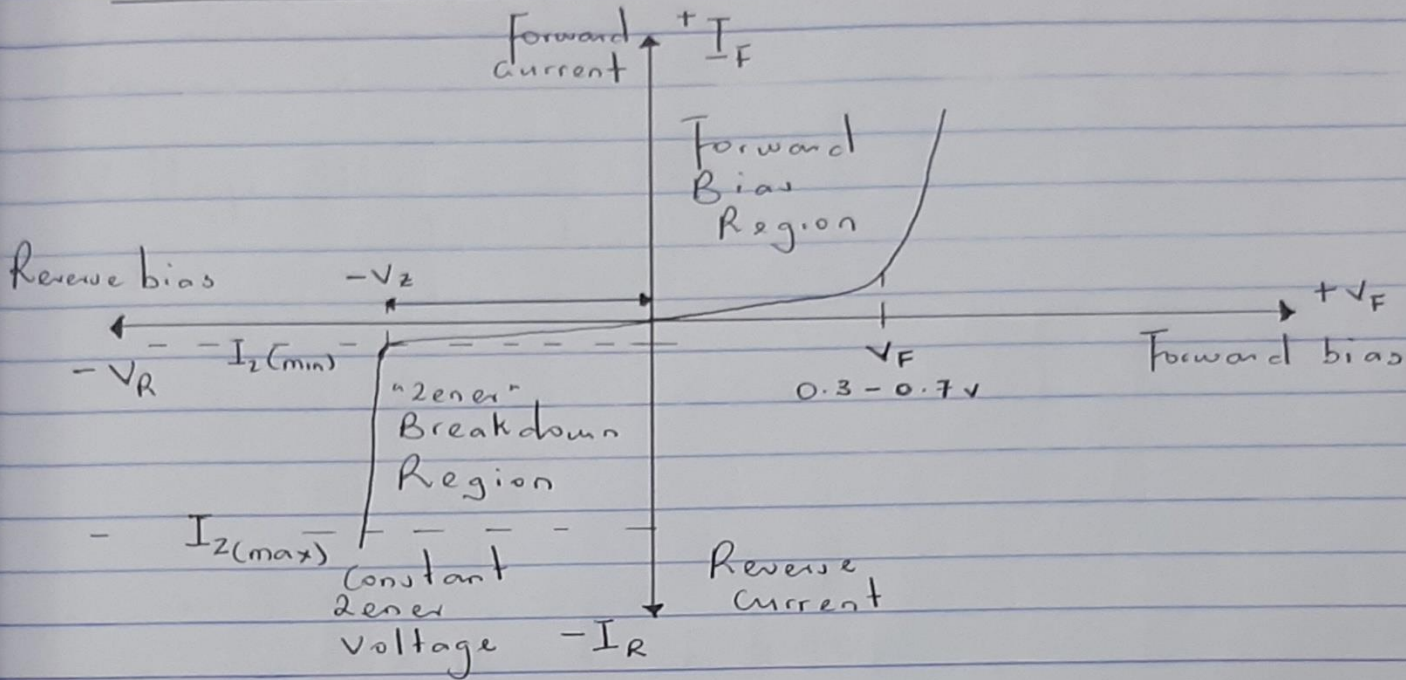 Forward
Current
+ I_F
Forward
Bias
Region
Reverse bias
-V_Z
+ V_F
- V_R
I_Z(min)
V_F
0.3 - 0.7 v
Forward bias
"Zener"
Breakdown
Region
I_Z(max)
Constant
Zener
Voltage
- I_R
Reverse
Current